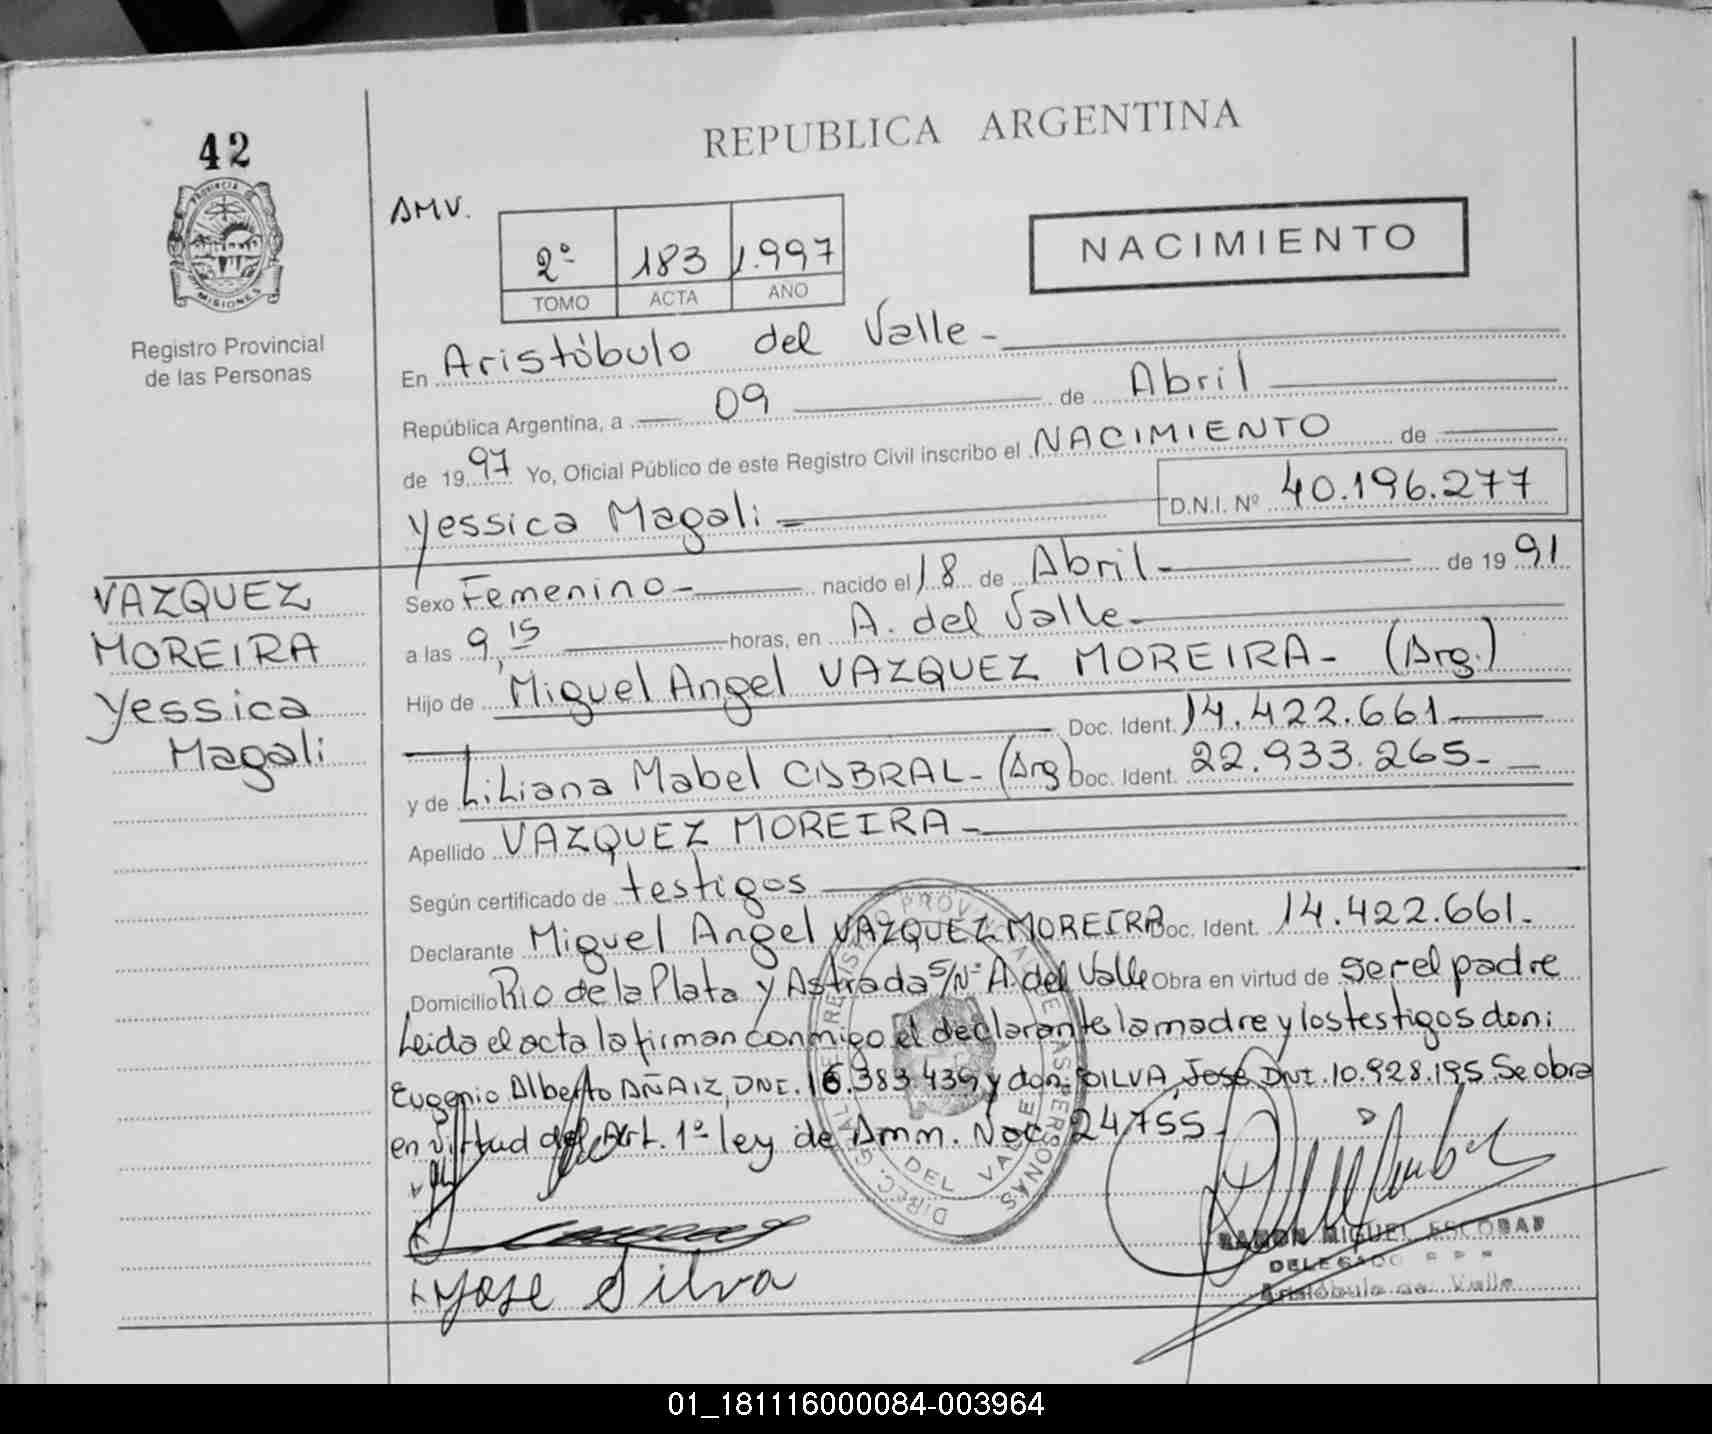 42
PROVINCIA DE
MISIONES
Registro Provincial
de las Personas
REPUBLICA ARGENTINA
AMV.
2º 183 1.997
TOMO ACTA AÑO
NACIMIENTO
En Aristóbulo del Valle -
República Argentina, a 09 de Abril
de 1997 Yo, Oficial Público de este Registro Civil inscribo el NACIMIENTO de
Yessica Magali = D.N.I. Nº 40.196.277
VAZQUEZ
MOREIRA
Yessica
Magali
Sexo Femenino - nacido el 18 de Abril - de 1991
a las 9,15 horas, en A. del Valle -
Hijo de Miguel Angel VAZQUEZ MOREIRA - (Arg.)
Doc. Ident. 14.422.661 -
y de Liliana Mabel CABRAL - (Arg) Doc. Ident. 22.933.265 -
Apellido VAZQUEZ MOREIRA -
Según certificado de testigos
Declarante Miguel Angel VAZQUEZ MOREIRA Doc. Ident. 14.422.661 -
Domicilio Rio de la Plata y Astrada S/Nº A. del Valle Obra en virtud de ser el padre
Leida el acta la firman conmigo el declarante la madre y los testigos don:
Eugenio Alberto AÑAIZ, DNI. 16.383.439 y don: SILVA, José DNI. 10.928.195. Se obra
en virtud del Art. 1º ley de Amn. Nac. 24755 -
Jose Silva
RAMON MIGUEL ESCOBAR
DELEGADO
Aristóbulo del Valle
DEL VALLE
01_181116000084-003964